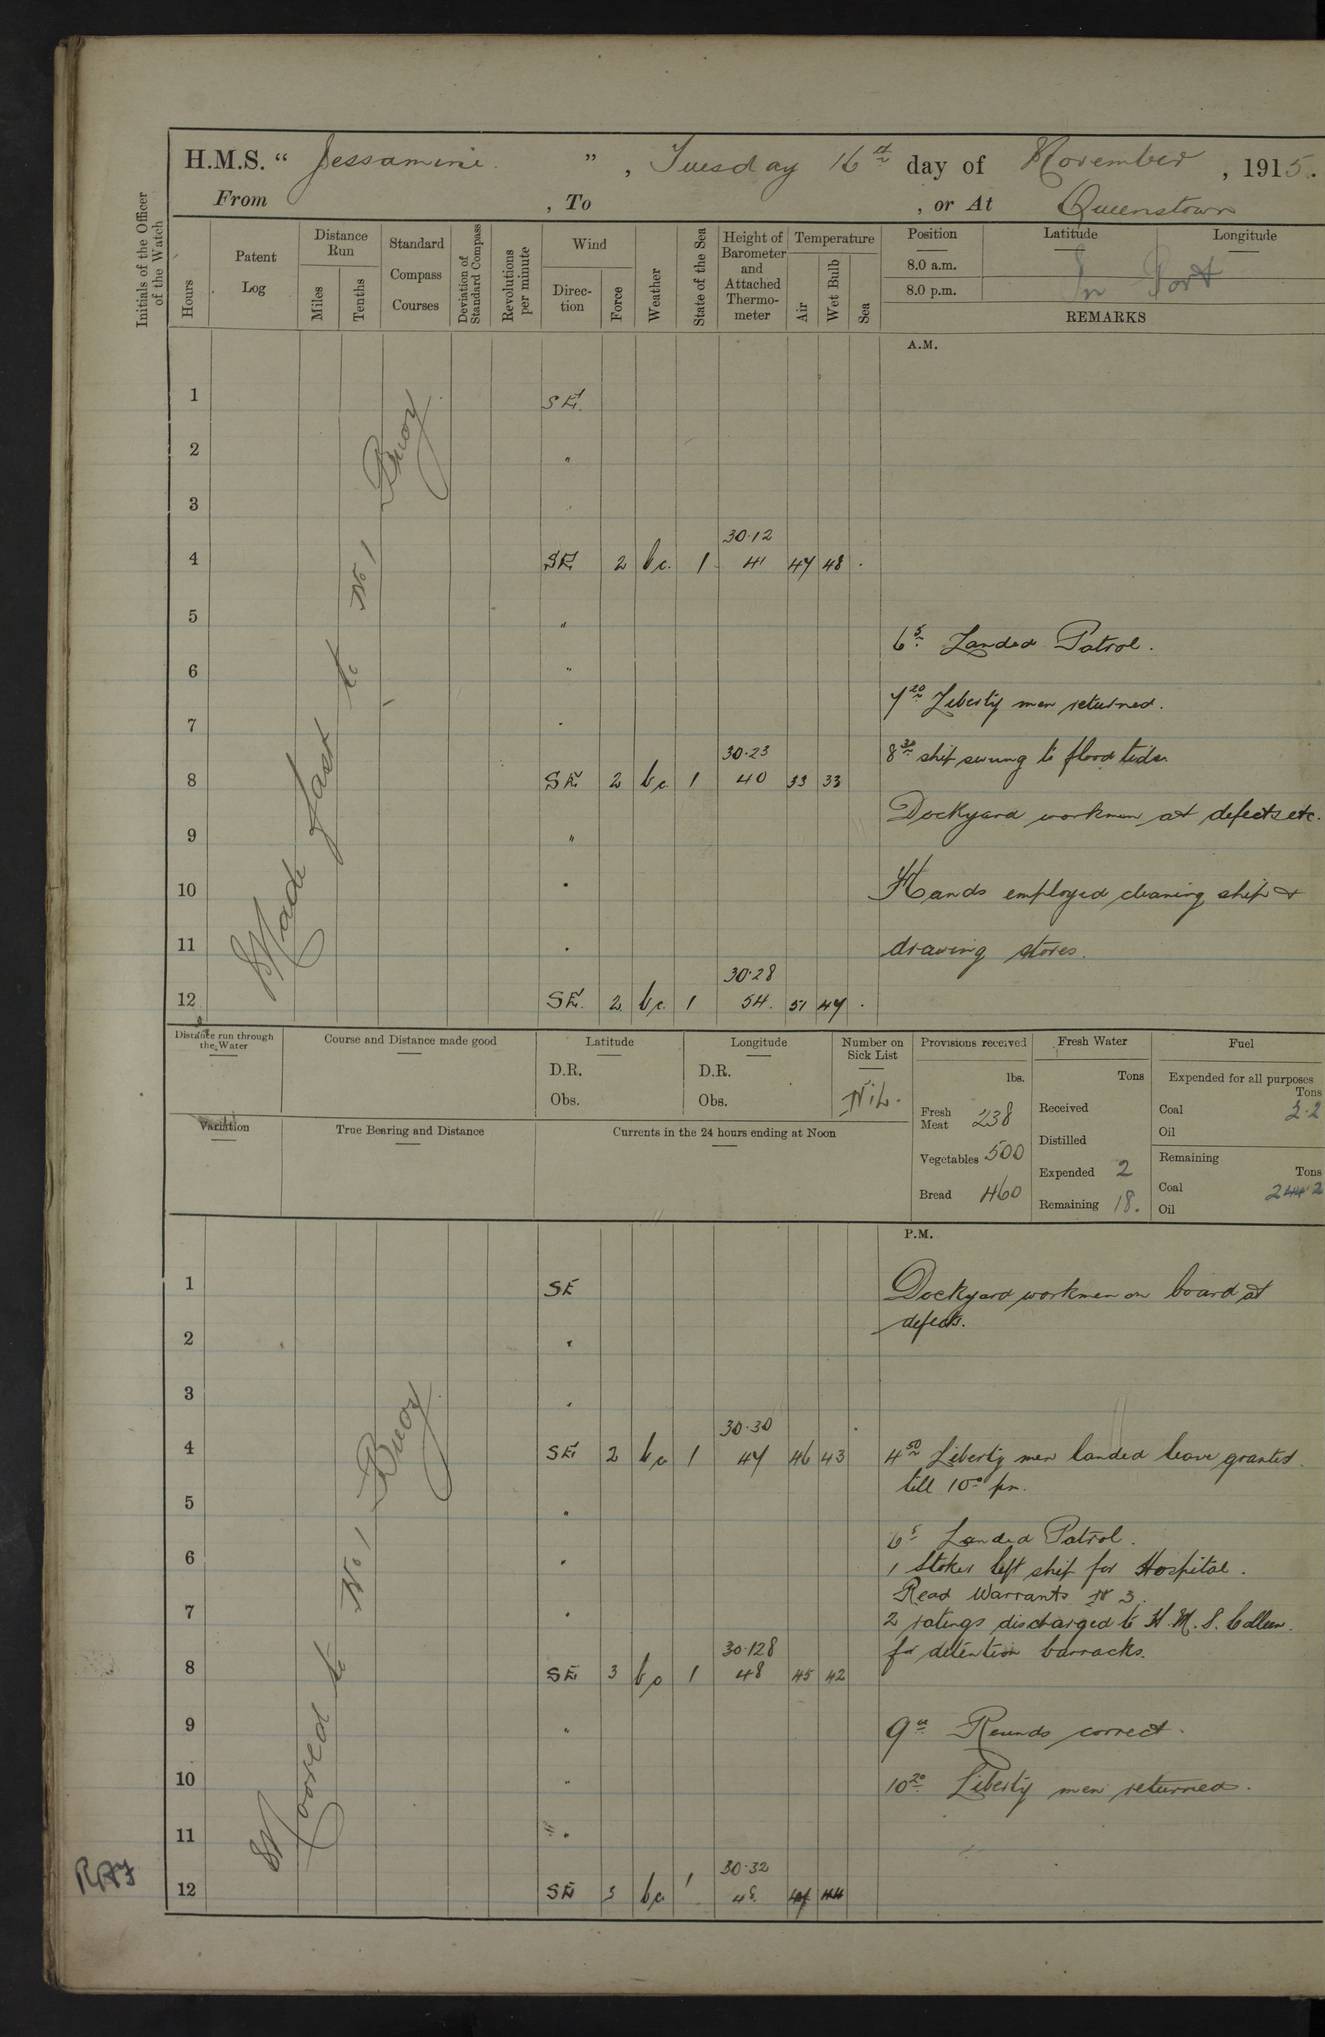 H.M.S. “ Jessamine ” , Tuesday 16th day of November , 1915.
From , To , or At Queenstown
Initials of the Officer of the Watch
Hours
Patent Log
Distance Run
Miles
Tenths
Standard Compass Courses
Deviation of Standard Compass
Revolutions per minute
Wind
Direc-tion
Force
Weather
State of the Sea
Height of Barometer and Attached Thermo-meter
Temperature
Air
Wet Bulb
Sea
Position Latitude Longitude
8.0 a.m.
8.0 p.m.
In Port
REMARKS
A.M.
Made fast to No 1 Buoy
1 SE
2 "
3
30.12
4 SE 2 bc. 1 41 47 48
5 "
6 5 Landed Patrol.
6 "
7 20 Liberty men returned.
7 "
30.23
8 30 ship swung to flood tide.
8 SE 2 bc 1 40 33 33
Dockyard workmen at defects etc.
9 "
10 " Hands employed cleaning ship &
11 " drawing stores.
30.28
12 SE. 2 bc. 1 54. 51 47
Distance run through the Water
Course and Distance made good
Latitude
D.R.
Obs.
Longitude
D.R.
Obs.
Number on Sick List
Nil.
Provisions received
lbs.
Fresh Meat 238
Vegetables 500
Bread 460
Fresh Water
Tons
Received
Distilled
Expended 2
Remaining 18.
Fuel
Expended for all purposes
Tons
Coal 2.2
Oil
Remaining
Tons
Coal
Oil
Variation
True Bearing and Distance
Currents in the 24 hours ending at Noon
P.M.
Moored to No 1 Buoy
1 SE Dockyard workmen on board at
defects.
2 "
3 "
30.30
4 SE 2 bc 1 47 46 43 4 50 Liberty men landed leave granted
till 10.0 pm.
5 "
6 5 Landed Patrol.
6 " 1 Stoker left ship for Hospital.
Read Warrants No 3.
7 " 2 ratings discharged to H.M.S. Colleen.
for detention barracks.
30.128
8 SE 3 bc 1 48 45 42
9 " 9 00 Rounds correct.
10 " 10 20 Liberty men returned.
11 "
30.32
12 SE 3 bc 1 48